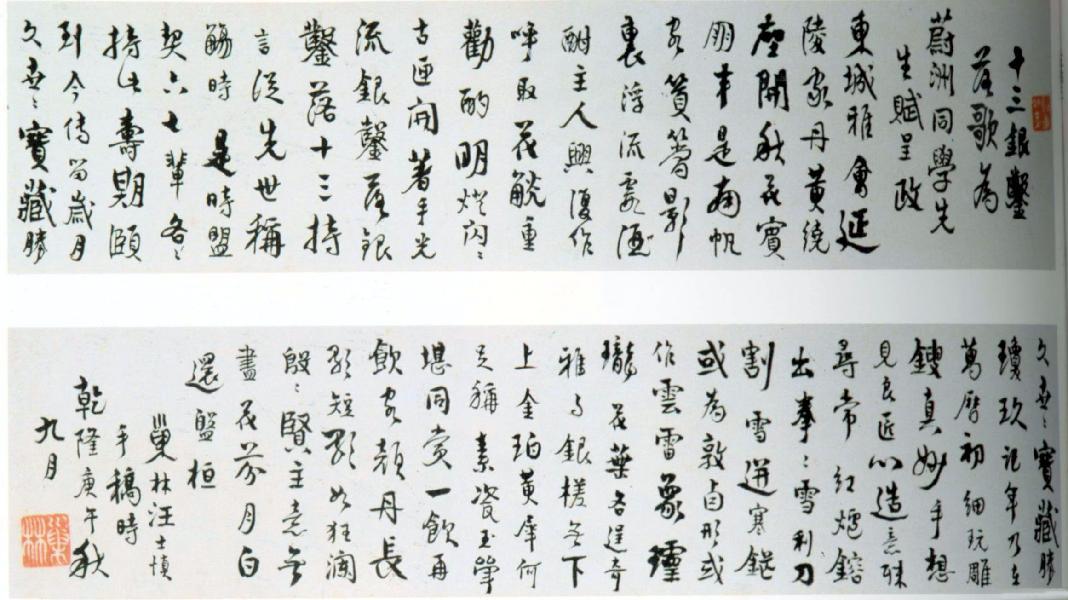 十三銀鑿
落歌為
蔚洲同學先
生賦呈政
東城雅會延
陵家丹黃繞
座開秋花賓
朋半是南帆
客篔簹影
裏浮流霞酒
酣主人興復作
呼取花觥重
勸酌明燈閃々
古匣開著手光
流銀鑿落銀
鑿落十三持
言從先世稱
觴時是時盟
契六七輩各々
持此壽期頤
到今傳留歲月
久世々寶藏勝
久世々寶藏勝
瓊玖記年乃在
萬曆初細玩雕
鎪真妙手想
見良匠心造意殊
尋常紅爐鎔
出拳々雪利刀
割雪迸寒鋩
或為敦卣形或
作雲雷象
瓏花葉各逞奇
雅與銀槎無下
上金珀黃犀何
足稱素瓷玉斝
堪同賞一飲再
飲客顏丹長
歌短歌如狂瀾
殷々賢主意無
盡花芬月白
還盤桓
巢林汪士慎
手稿時
乾隆庚午秋
九月
巢林